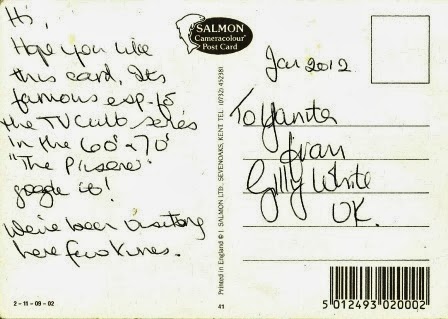 Hi,
Hope you like
this card. Its
famous esp. to
the TV Cult series
in the 60' & 70'
"The Prisoner"
google it!
We've been visiting
here few times.
2-11-09-02
SALMON
Cameracolour
Post Card
Printed in England © J. SALMON LTD., SEVENOAKS, KENT TEL: (0732) 452381
41
Jan 2012
To Yanita
Ivan
Gilly White
UK.
5 012493 020002